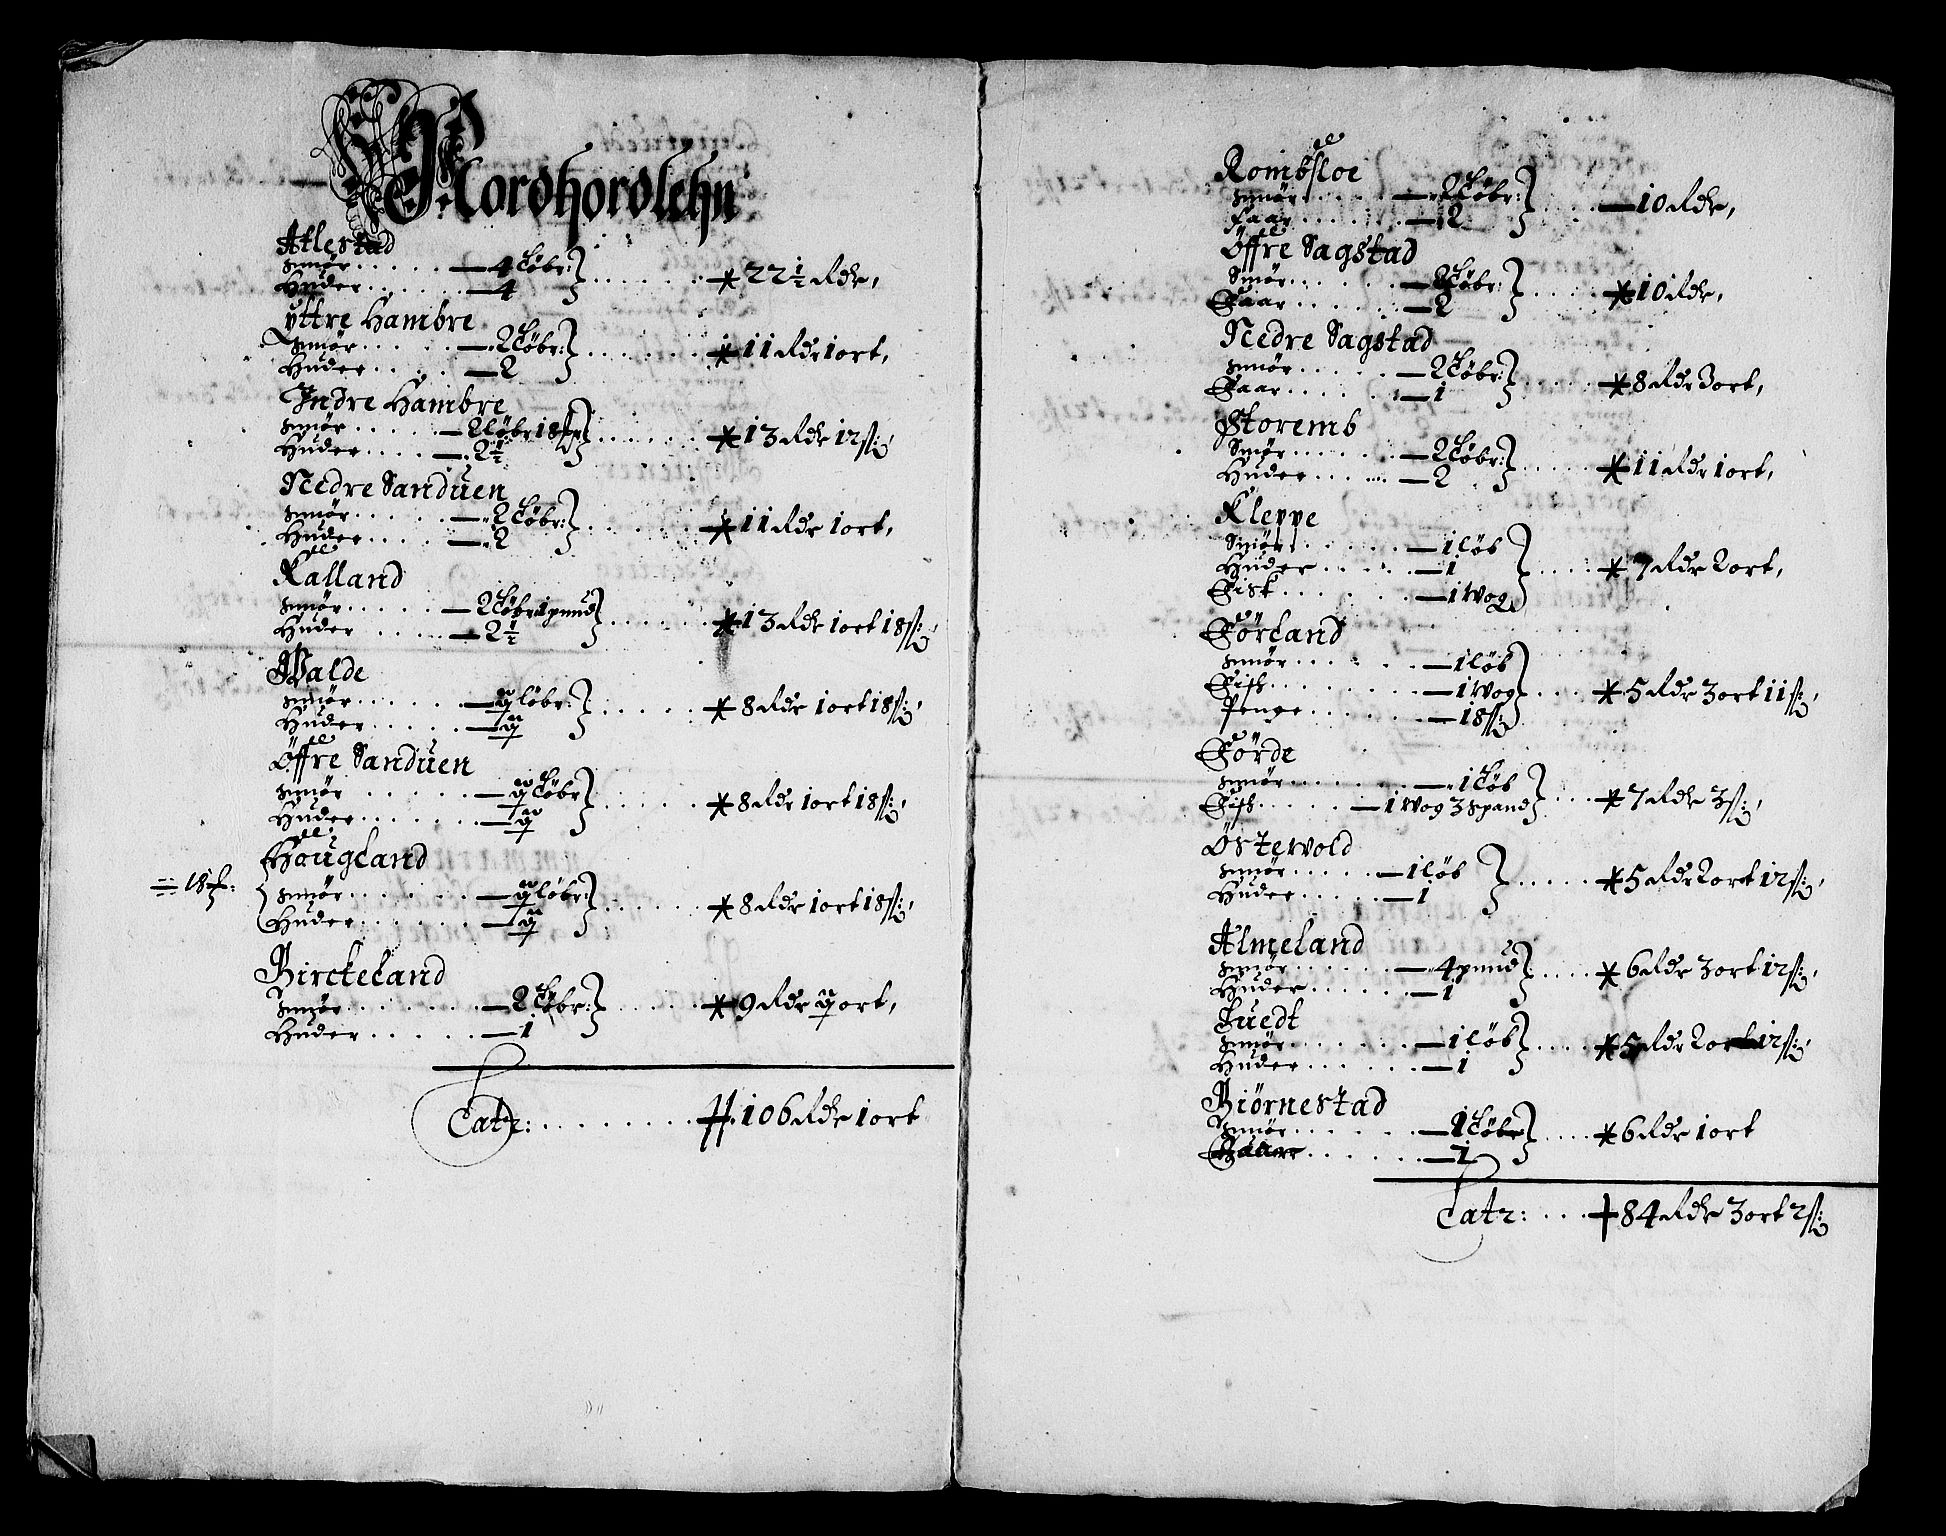 Nordhordlehn
Atlestad
Smör . . . . . — 4 Löbr:
Huder . . . . . — 4 . . . . . . 22 1/2 Rdr,
Yttre Hambre
Smör . . . . . — 2 Löbr:
Huder . . . . — 2 . . . . . . 11 Rdr 1 ort,
Indre Hambre
Smör . . . . . — 2 Löbr 18
Huder . . . . — 2 1/2 . . . . . . 13 Rdr 12 ß:
Nedre Sanduen
Smör . . . . . — 2 Löbr:
Huder . . . . — 2 . . . . . . 11 Rdr 1 ort,
Kalland
Smör . . . . . — 2 Löbr 1 pund
Huder . . . . . — 2 1/2 . . . . . . 13 Rdr 1 ort 18 ß:
Walde
Smör . . . . . — löbr:
Huder . . . . . — . . . . . . 8 Rdr 1 ort 18 ß:
Öffre Sanduen
Smör . . . . . — Löbr
Huder . . . . . — . . . . . . 8 Rdr 1 ort 18 ß:
Hougland
18
Smör . . . . . — löbr:
Huder . . . . . — . . . . . . 8 Rdr 1 ort 18 ß:
Birckeland
Smör . . . . . — 2 Löbr:
Huder . . . . . — 1 . . . . . . 9 Rdr ort,
Latr: . . . . . . . . 106 Rdr 1 ort
Rombsloe
Smör . . . . . — 2 Löbr:
Faar . . . . . — 2 . . . . — 10 Rdr,
Öffre Sagstad
Smör . . . . . — 2 Löbr:
Faar . . . . . — 2 . . . . 10 Rdr,
Nedre Sagstad
Smör . . . . . — 2 Löbr:
Faar . . . . . — 1 . . . . 8 Rdr 3 ort,
Storemb
Smör . . . . . — 2 Löbr:
Huder . . . . . — 2 . . . . 11 Rdr 1 ort,
Kleppe
Smör . . . . . — 1 löb
Huder . . . . . — 1 . . . . 7 Rdr 2 ort,
Fisk . . . . . — 1 Wog
Förland
Smör . . . . . — 1 löb
Fisk . . . . . — 1 Wog . . . . 5 Rdr 3 ort 11 ß:
Penge . . . . . — 18 ß:
Förde
Smör . . . . . — 1 Löb
Fisk . . . . . — 1 Wog 3 Spand . . . . 7 Rdr 3 ß:
Östewold
Smör . . . . . — 1 löb
Huder . . . . . — 1 . . . . . 5 Rdr 2 ort 12 ß:
Almeland
Smör . . . . . — 4 pund
Huder . . . . . — 1 . . . . 6 Rdr 3 ort 12 ß:
Tuedt
Smör . . . . . — 1 löb
Huder . . . . . — 1 . . . . 5 Rdr 2 ort 12 ß:
Biörnestad
Smör . . . . . — 1 Löbr
. . . . . — 1 . . . . 6 Rdr 1 ort
Latr: . . . 84 Rdr 3 ort 2 ß: